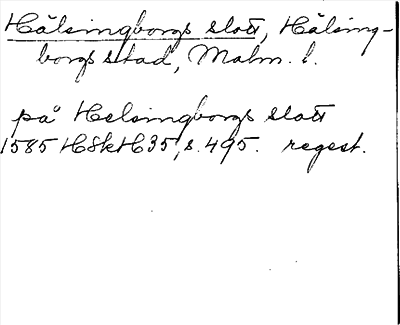 Hälsingborgs slott, Hälsing-
borgs stad, Malm. l.
på Helsingborgs slott
1585 HSkH35, s. 495. regest.